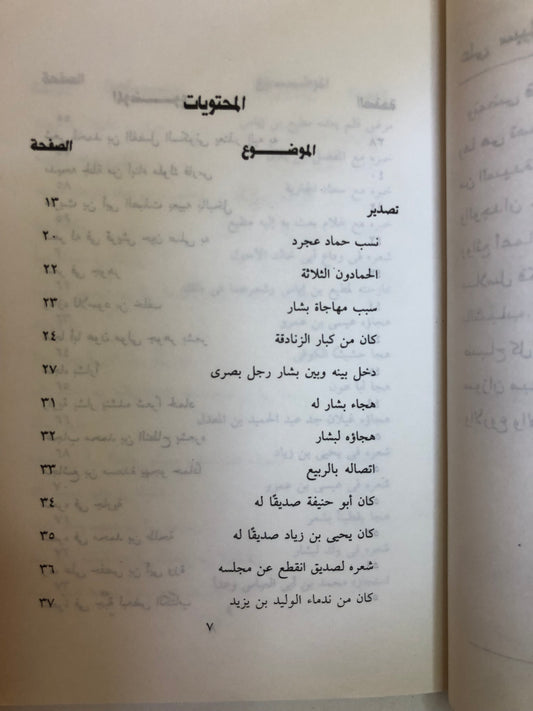 المحتويات
الموضـــــوع الصفحة
تصدير ١٣
نسب حماد عجرد ٢٠
الحمادون الثلاثة ٢٢
سبب مهاجاة بشار ٢٣
كان من كبار الزنادقة ٢٤
دخل بينه وبين بشار رجل بصرى ٢٧
هجاء بشار له ٣١
هجاؤه لبشار ٣٢
اتصاله بالربيع ٣٣
كان أبو حنيفة صديقًا له ٣٤
كان يحيى بن زياد صديقًا له ٣٥
شعره لصديق انقطع عن مجلسه ٣٦
كان من ندماء الوليد بن يزيد ٣٧
٧